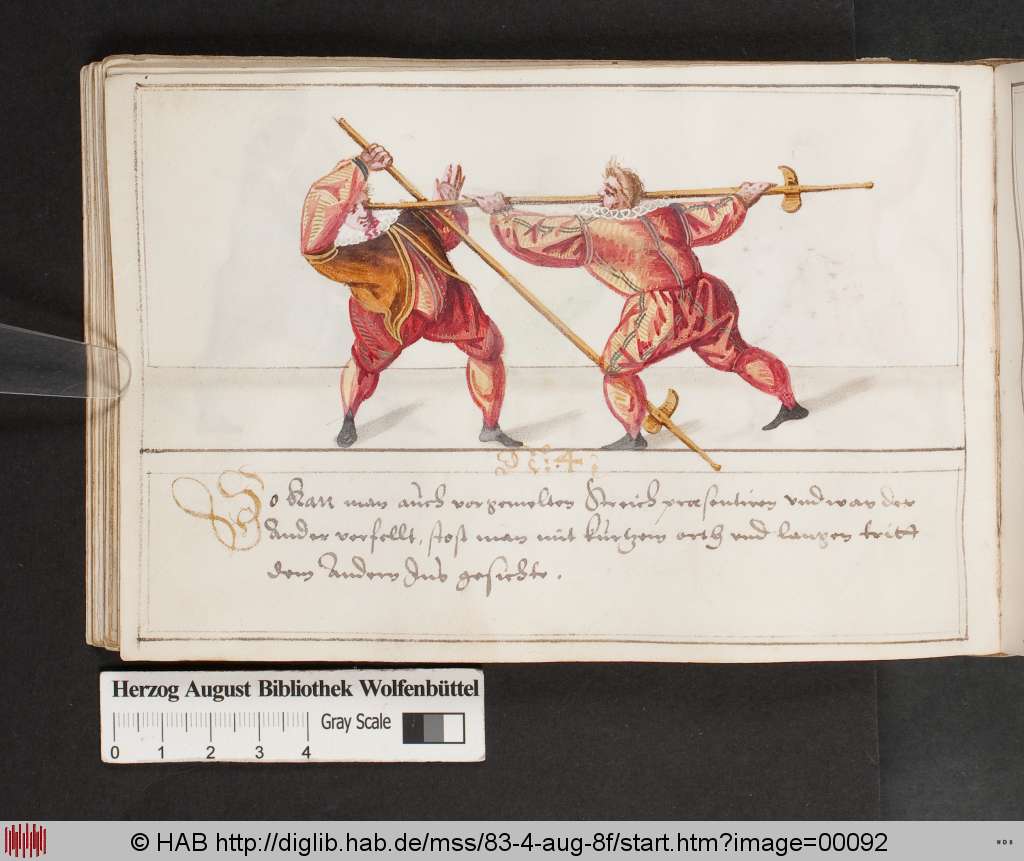 So kan man auch vorgemelten Streich præsentiren vnd wan der
Ander verfellt, stost man mit kurtzem orth vnd langen tritt
dem Andern Ins gesichte.
Herzog August Bibliothek Wolfenbüttel
Gray Scale
0 1 2 3 4
© HAB http://diglib.hab.de/mss/83-4-aug-8f/start.htm?image=00092